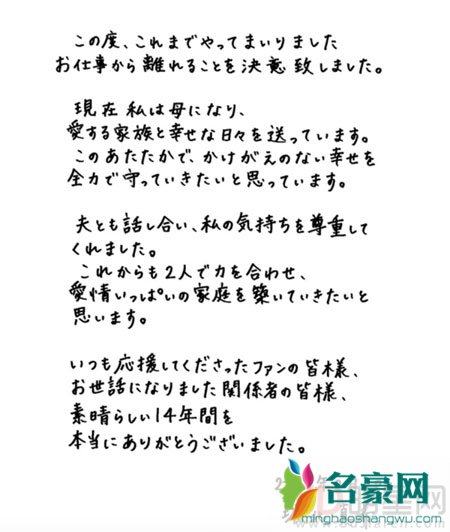 この度、これまでやってまいりました
お仕事から離れることを決意致しました。
現在私は母になり、
愛する家族と幸せな日々を送っています。
このあたたかで、かけがえのない幸せを
全力で守っていきたいと思っています。
夫とも話し合い、私の気持ちを尊重して
くれました。
これからも2人で力を合わせ、
愛情いっぱいの家庭を築いていきたいと
思います。
いつも応援してくださったファンの皆様、
お世話になりました関係者の皆様、
素晴らしい14年間を
本当にありがとうございました。
名豪网
minghaoshangwu.com